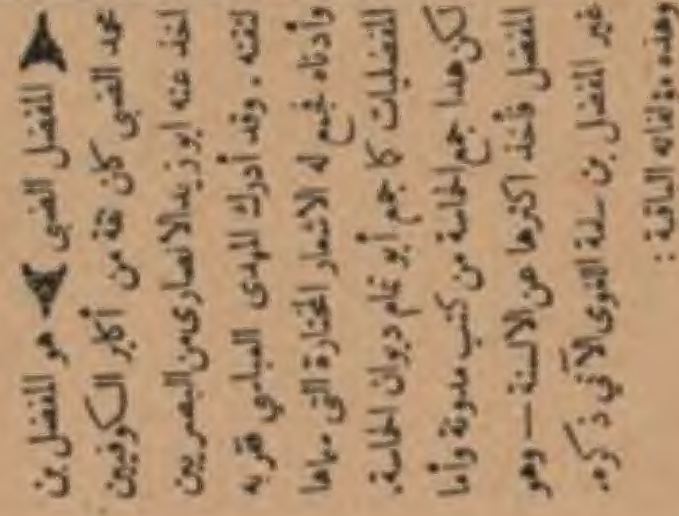 ﴿ المفضل الضبي ﴾ هو المفضل بن
محمد الضبي كان ثقة من أكابر الكوفيين
اخذ عنه ابو زيد الانصاري من البصريين
لثقته . وقد أدرك المهدي العباسي فقربه
وأدناه فجمع له الاشعار المختارة التي سماها
المفضليات كما جمع أبو تمام ديوان الحماسة.
لكن هذا جمع الحماسة من كتب مدونة وأما
المفضل فأخذ اكثرها عن الالسنة — وهو
غير المفضل بن سلمة اللغوي الآتي ذكره.
وهذه مؤلفاته الباقية :